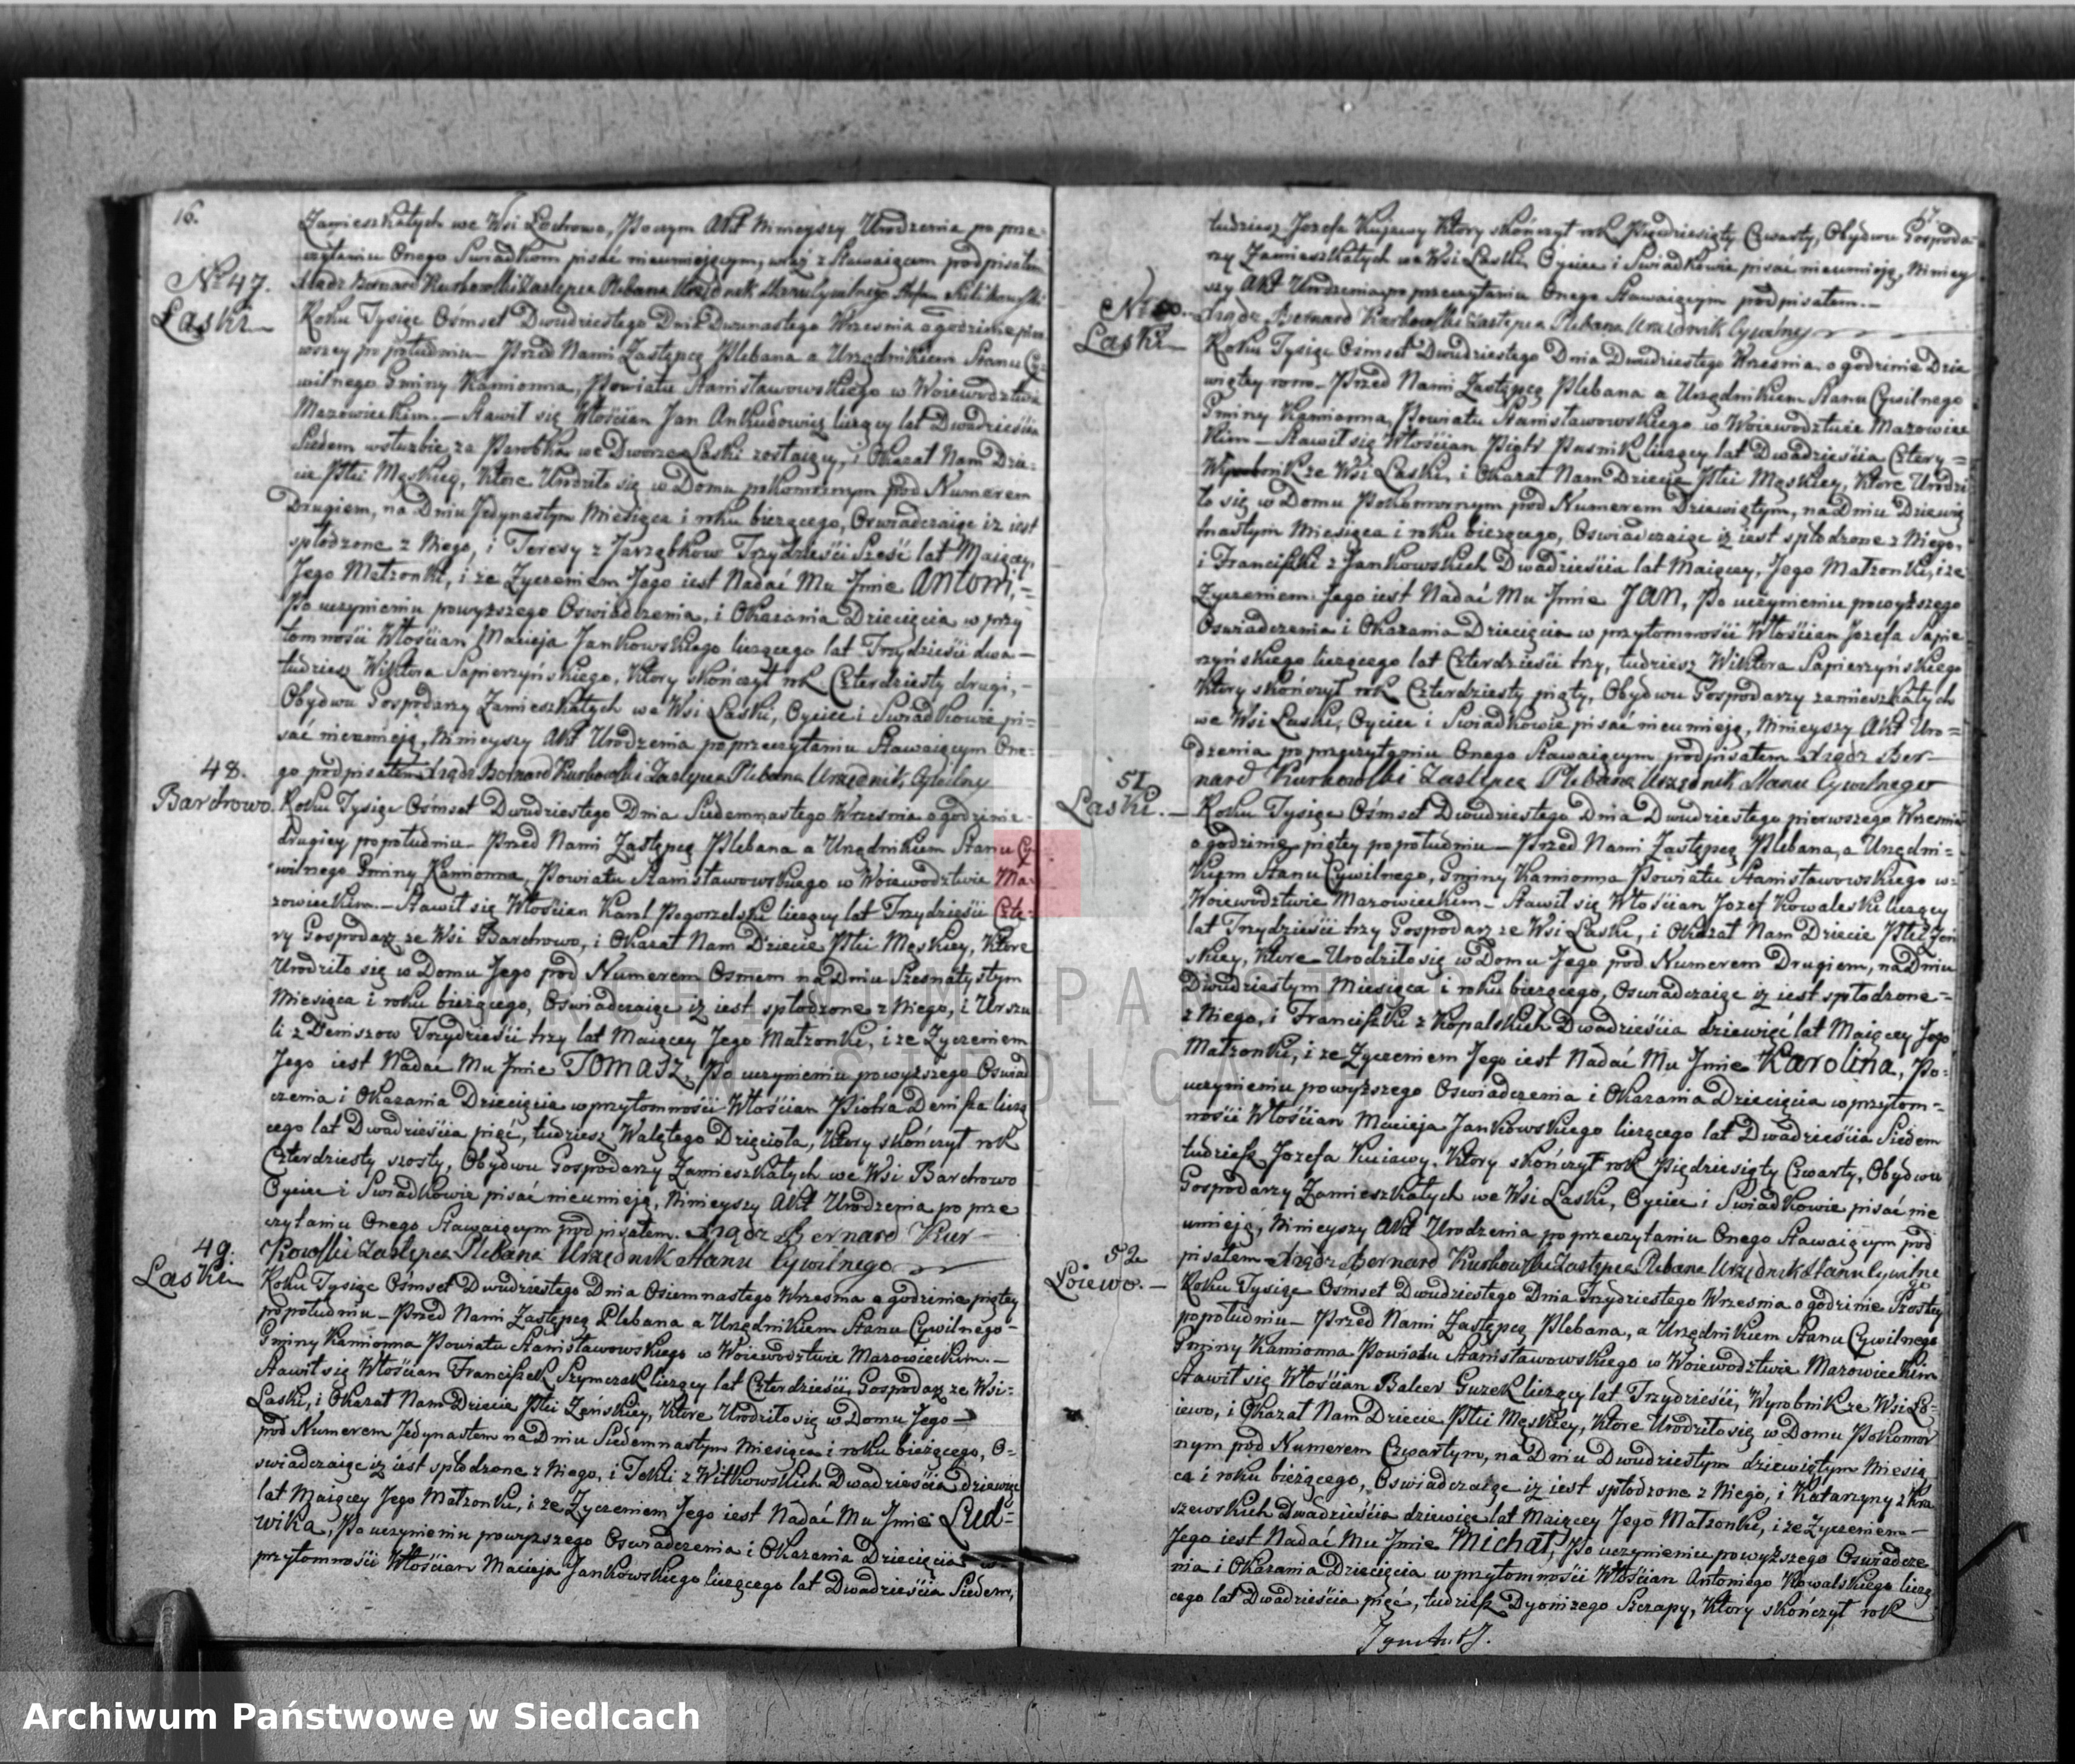 16.
Zamieszkałych we Wsi Łochowo, Poczym Akt Ninieyszy Urodzenia po prze-
czytaniu Onego Swiadkom pisać nieumiejącym, wraz z Stawaiącem podpisałem
Xiądz Bernard Kurkowski Zastępca Plebana Urzędnik Stanu Cywilnego
No 47.
Laski
Roku Tysiąc Ośmset Dwudziestego Dnia Dwunastego Wrzesnia o godzinie pier-
wszey po południu – Przed Nami Zastępcą Plebana a Urzędnikiem Stanu Cy-
wilnego Gminy Kamionna, Powiatu Stanisławowskiego w Woiewodztwie
Mazowieckim. – Stawił się Włościan Jan Ankudowicz liczący lat Dwadzieścia
Siedem wsłużbie za Parobka we Dworze Laski zostaiący, i Okazał Nam Dzie-
cie Płci Męskiey, Ktore Urodziło się w Domu pokomornym pod Numerem
Drugiem, na Dniu Jedynastym Miesiąca i roku bierzącego, Oswiadczaiąc iż iest
spłodzone z Niego, i Teresy z Jarząbkow Trzydzieści Sześć lat Maiącey,
Jego Małzonki, i ze Zyczeniem Jego iest Nadać Mu Jmie Antoni,=
Po uczynieniu powyższego Oswiadczenia, i Okazania Dziecięcia w przy
tomności Włościan Macieja Jankowskiego liczącego lat Trzydzieści dwa –
tudziesz Wiktora Sapierzyńskiego, Ktory skończył rok Czterdziesty drugi, –
Obydwu Gospodarzy Zamieszkałych we Wsi Laski, Oyciec i Swiadkowie pi=
sać nieumieją, Ninieyszy Akt Urodzenia po przeczytaniu Stawaiącym One-
go podpisałem Xiądz Bernard Kurkowski Zastępca Plebana Urzędnik Cywilny
48.
Barchowo.
Roku Tysiąc Ośmset Dwudziestego Dnia Siedemnastego Wrzesnia o godzinie
drugiey popołudniu – Przed Nami Zastępcą Plebana a Urzędnikiem Stanu Cy-
wilnego Gminy Kamionna, Powiatu Stanisławowskiego w Woiewodztwie Ma-
zowieckim. – Stawił się Włościan Karol Pogorzelski liczący lat Trzydzieści Czte-
ry Gospodarz ze Wsi Barchowo, i Okazał Nam Dziecie Płci Męskiey, Ktore
Urodziło się w Domu Jego pod Numerem Osmem na Dniu Szesnastystym
Miesiąca i roku bieżącego, Oswiadczaiąc iż iest spłodzone z Niego, i Urszu
li z Deniszow Trzydzieści trzy lat Maiącey Jego Małzonki, i ze Zyczeniem
Jego iest Nadać Mu Jmie Tomasz, Po uczynieniu powyższego Oswiad
czenia i Okazania Dziecięcia w przytomności Włościan Piotra Denisza liczą
cego lat Dwadzieścia pięć, tudziesz Walętego Dzięcioła, Ktory skończył rok
Czterdziesty szosty, Obydwu Gospodarzy Zamieszkałych we Wsi Barchowo
Oyciec i Swiadkowie pisać nieumieją, Ninieyszy Akt Urodzenia po prze
czytaniu Onego Stawaiącym podpisałem. Xiądz Bernard Kur-
kowski Zastępca Plebana Urzędnik Stanu Cywilnego
49.
Laski
Roku Tysiąc Ośmset Dwudziestego Dnia Osiemnastego Wrzesnia o godzinie piątey
popołudniu – Przed Nami Zastępcą Plebana a Urzędnikiem Stanu Cywilnego
Gminy Kamionna Powiatu Stanisławowskiego w Woiewodztwie Mazowieckim. –
Stawił się Włościan Franciszek Szymczak liczący lat Czterdzieści, Gospodarz ze Wsi=
Laski, i Okazał Nam Dziecie Płci Zeńskiey, Ktore Urodziło się w Domu Jego –
pod Numerem Jedynastem na Dniu Siedemnastym Miesiąca i roku bieżącego, O=
swiadczaiąc iż iest spłodzone z Niego, i Tekli z Witkowskich Dwadzieścia dziewięć
lat Maiącey Jego Małzonki, i ze Zyczeniem Jego iest Nadać Mu Jmie Lud=
wika, Po uczynieniu powyższego Oswiadczenia i Okazania Dziecięcia w
przytomności Włościan Macieja Jankowskiego liczącego lat Dwadzieścia Siedem,
17.
tudziesz Jozefa Kujawy Ktory skończył rok Pięćdziesiąty Czwarty, Obydwu Gospoda-
rzy Zamieszkałych we Wsi Laski, Oyciec i Swiadkowie pisać nieumieją, Niniey
szy Akt Urodzenia po przeczytaniu Onego Stawaiącym podpisałem. –
Xiądz Bernard Kurkowski Zastępca Plebana Urzędnik Cywilny
No 50.
Laski
Roku Tysiąc Ośmset Dwudziestego Dnia Dwudziestego Wrzesnia o godzinie Dzie
wiątey rano – Przed Nami Zastępcą Plebana a Urzędnikiem Stanu Cywilnego
Gminy Kamionna, Powiatu Stanisławowskiego w Woiewodztwie Mazowiec
kim – Stawił się Włościan Piotr Pasnik liczący lat Dwadzieścia Cztery =
Wyrobnik ze Wsi Laski, i Okazał Nam Dziecie Płci Męskiey, Ktore Urodzi
ło się w Domu Pokomornym pod Numerem Dziewiątym, na Dniu Dziewię
tnastym Miesiąca i roku bieżącego, Oswiadczaiąc iż iest spłodzone z Niego,
i Franciszki z Jankowskich Dwadzieścia lat Maiącey, Jego Małzonki, i ze
Zyczeniem Jego iest Nadać Mu Jmie Jan, Po uczynieniu powyższego
Oswiadczenia i Okazania Dziecięcia w przytomności Włościan Jozefa Sapie
rzyńskiego liczącego lat Czterdzieści trzy, tudziesz Wiktora Sapierzyńskiego
Ktory skończył rok Czterdziesty piąty, Obydwu Gospodarzy zamieszkałych
we Wsi Laski, Oyciec i Swiadkowie pisać nieumieją, Ninieyszy Akt Uro=
dzenia po przeczytaniu Onego Stawaiącym podpisałem Xiądz Ber-
nard Kurkowski Zastępca Plebana Urzędnik Stanu Cywilnego
51.
Laski. –
Roku Tysiąc Ośmset Dwudziestego Dnia Dwudziestego pierwszego Wrzesnia
o godzinie piątey popołudniu – Przed Nami Zastępcą Plebana, a Urzędni=
kiem Stanu Cywilnego, Gminy Kamionna Powiatu Stanisławowskiego w=
Woiewodztwie Mazowieckim – Stawił się Włościan Jozef Kowaleski liczący
lat Trzydzieści trzy Gospodarz ze Wsi Laski, i Okazał Nam Dziecie Płci Zeń
skiey, Ktore Urodziło się w Domu Jego pod Numerem Drugiem, na Dniu
Dwudziestym Miesiąca i roku bieżącego, Oswiadczaiąc iż iest spłodzone=
z Niego, i Franciszki z Kopalskich Dwadzieścia dziewięć lat Maiącey Jego
Małzonki, i ze Zyczeniem Jego iest Nadać Mu Jmie Karolina, Po-
uczynieniu powyższego Oswiadczenia i Okazania Dziecięcia w przytom-
ności Włościan Macieja Jankowskiego liczącego lat Dwadzieścia Siedem
tudziesz Jozefa Kuiawy, Ktory skończył rok Pięćdziesiąty Czwarty, Obydwu
Gospodarzy Zamieszkałych we Wsi Laski, Oyciec i Swiadkowie pisać nie
umieją, Ninieyszy Akt Urodzenia po przeczytaniu Onego Stawaiącym pod
pisałem Xiądz Bernard Kurkowski Zastępca Plebana Urzędnik Stanu Cywilne
go
52
Łoiewo. –
Roku Tysiąc Ośmset Dwudziestego Dnia Trzydziestego Wrzesnia o godzinie Szostey
popołudniu – Przed Nami Zastępcą Plebana, a Urzędnikiem Stanu Cywilnego
Gminy Kamionna Powiatu Stanisławowskiego w Woiewodztwie Mazowieckim
Stawił się Włościan Balcer Guzek liczący lat Trzydzieści, Wyrobnik ze Wsi Ło-
iewo, i Okazał Nam Dziecie Płci Męskiey, Ktore Urodziło się w Domu Pokomor
nym pod Numerem Czwartym, na Dniu Dwudziestym dziewiątym Miesią
ca i roku bieżącego, Oswiadczaiąc iż iest spłodzone z Niego, i Katarzyny z Kra
szewskich Dwadzieścia dziewięć lat Maiącey Jego Małzonki, i ze Zyczeniem –
Jego iest Nadać Mu Jmie Michał, Po uczynieniu powyższego Oswiadcze
nia i Okazania Dziecięcia w przytomności Włościan Antoniego Kowalskiego liczą
cego lat Dwadzieścia pięć, tudziesz Dyonizego Szczapy, Ktory skończył rok
ARCHIWUM PAŃSTWOWE
SIEDLCACH
Archiwum Państwowe w Siedlcach